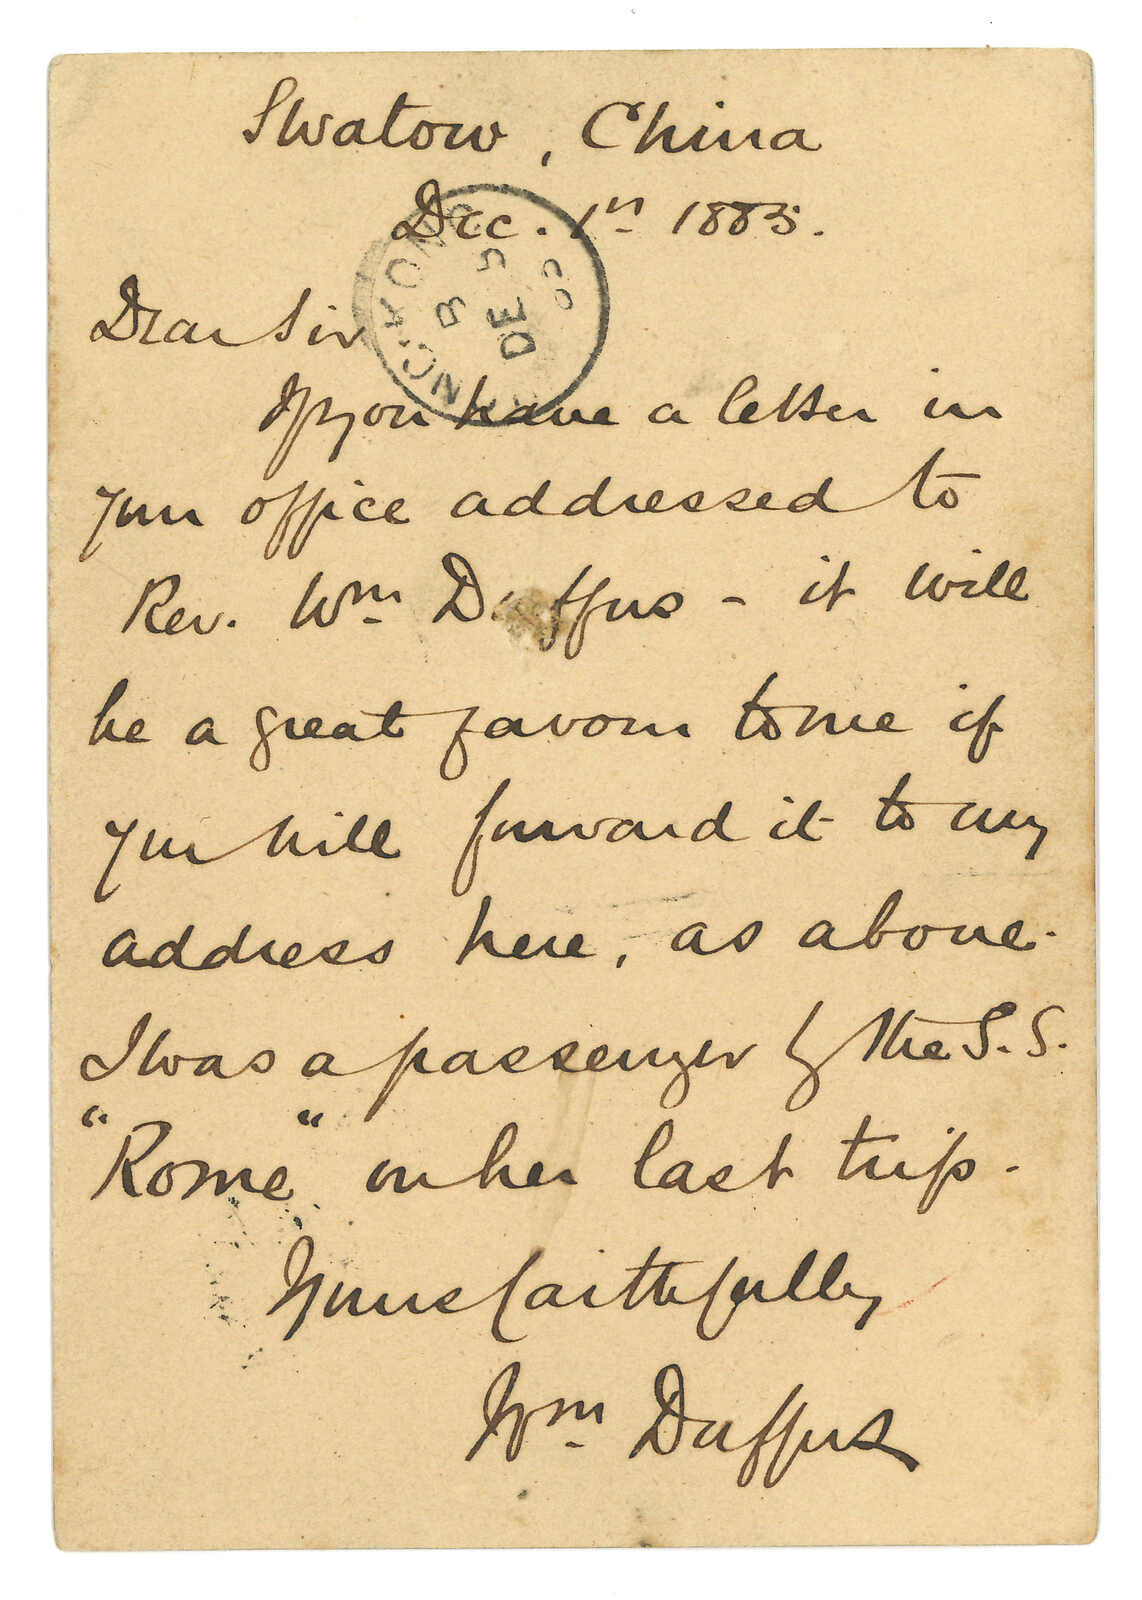 Swatow, China
Dec. 1st 1885.
Dear Sir
If you have a letter in
your office addressed to
Rev. Wm Duffus - it will
be a great favour to me if
you will forward it to my
address here, as above.
I was a passenger by the S.S.
"Rome" on her last trip.
Yours faithfully
Wm Duffus
HONG-KONG
B
DE 5
85